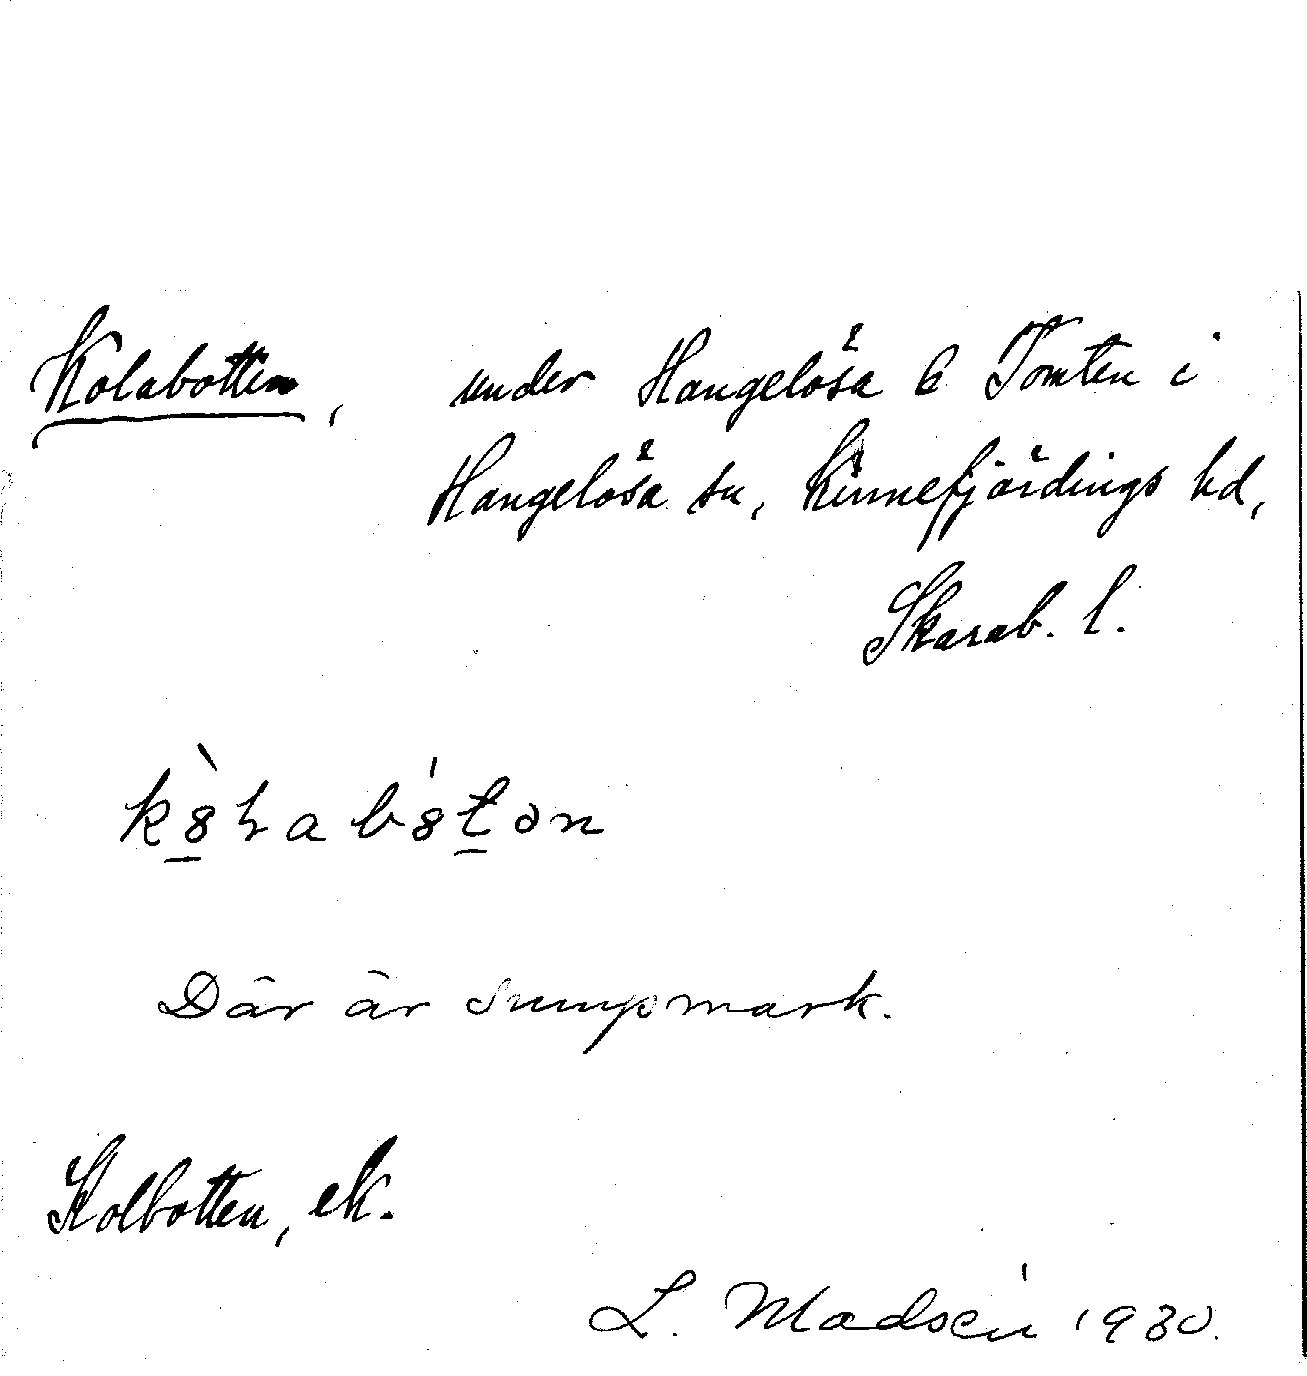 Kolabotten, under Hangelösa 6 Tomten i
Hangelösa sn, Kinnefjärdings hd,
Skarab. l.
Där är sumpmark.
Kolbotten, ek.
L. Madsén 1930.